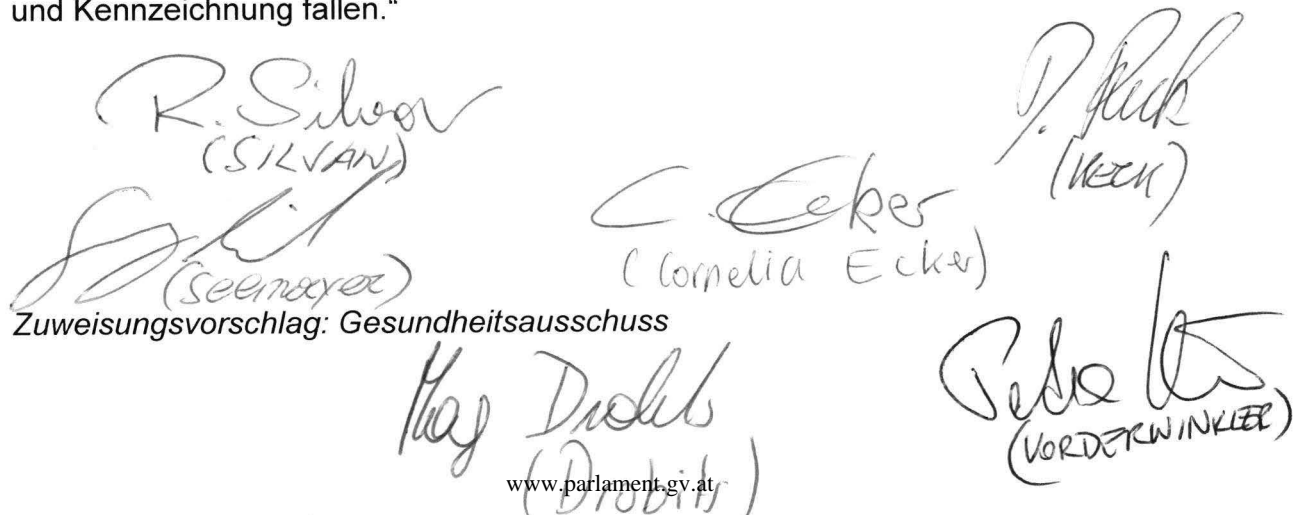 und Kennzeichnung fallen.“
R. Silvan
(SILVAN)
(KECK)
C. Ecker
(Cornelia Ecker)
(Seemayer)
Zuweisungsvorschlag: Gesundheitsausschuss
Mag Drobits
(Drobits)
Petra
(VORDERWINKLER)
www.parlament.gv.at